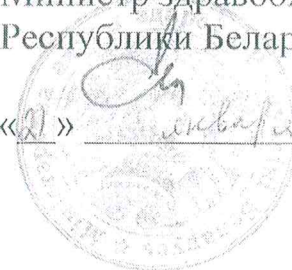 Министр здравоох
Республики Белар
«21» января